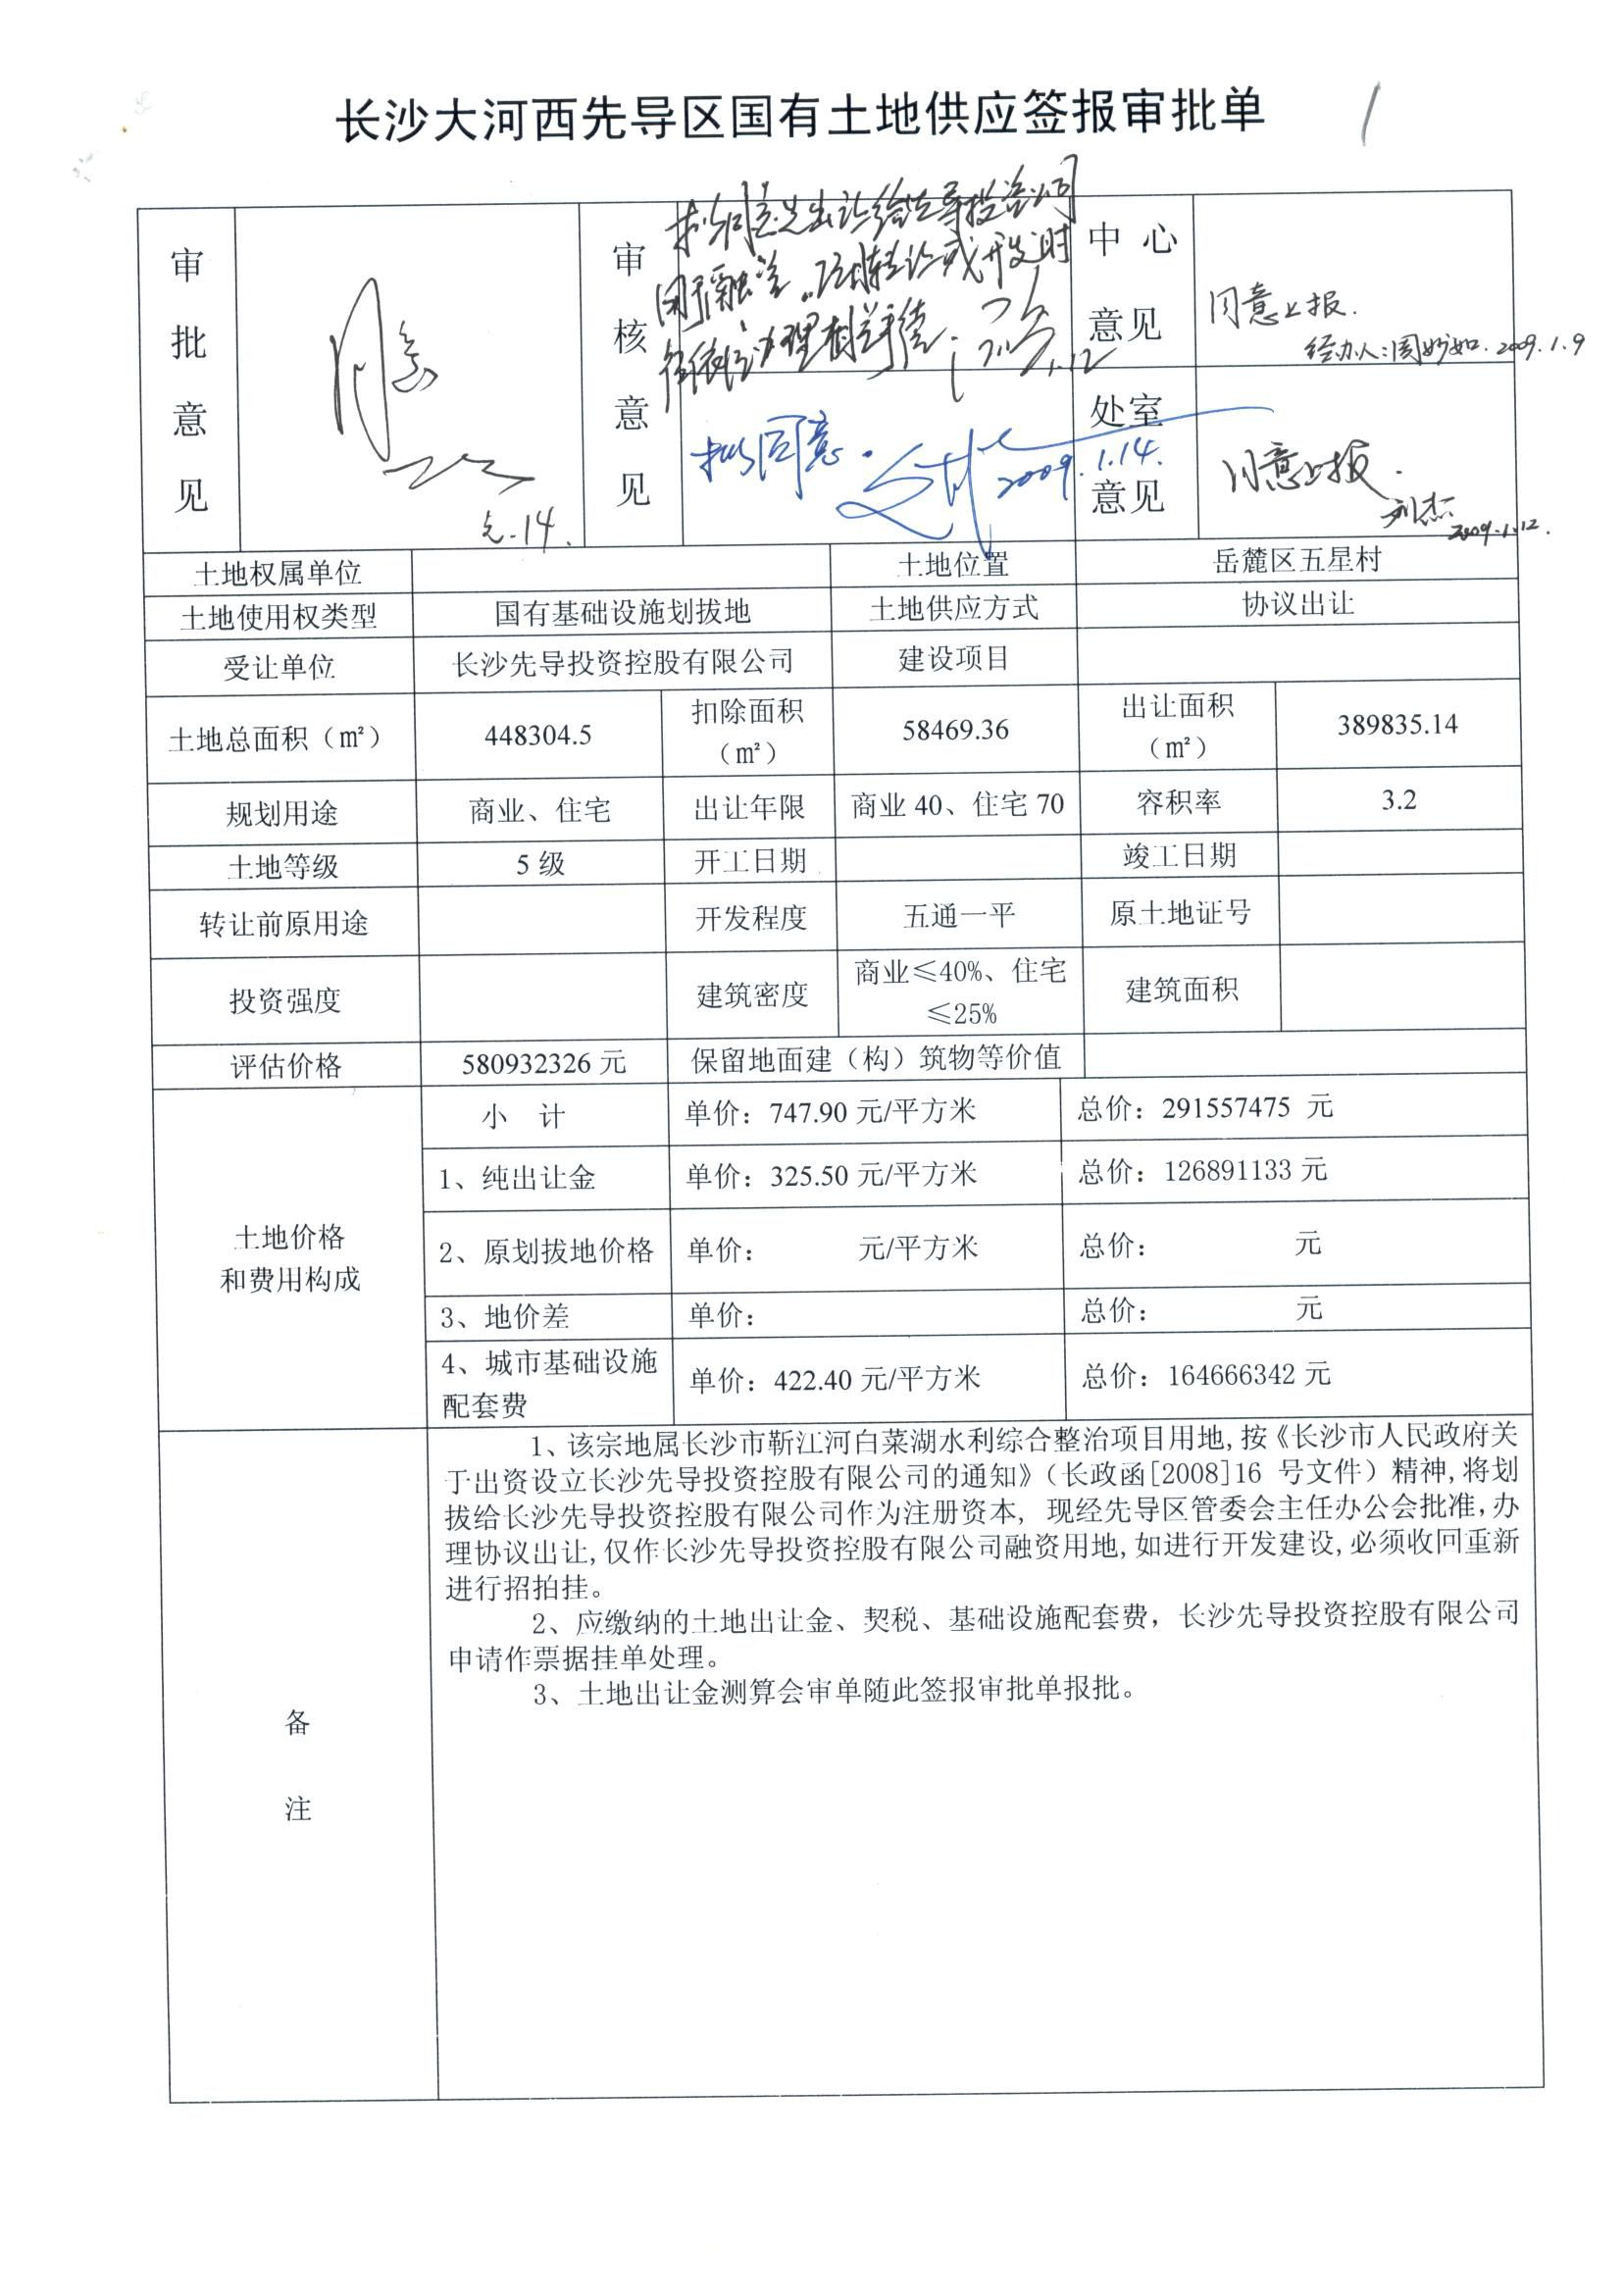 长沙大河西先导区国有土地供应签报审批单
审批意见 同意 元.14.
审核意见 拟同意先出让给先导投资公司
用于融资。 转让或开发时
办理相关手续. 1.12
拟同意. 2009.1.14.
中心意见 同意上报.
经办人:周妙如.2009.1.9
处室意见 同意上报.
刘杰 2009.1.12.
土地权属单位 土地位置 岳麓区五星村
土地使用权类型 国有基础设施划拔地 土地供应方式 协议出让
受让单位 长沙先导投资控股有限公司 建设项目
土地总面积（㎡） 448304.5 扣除面积（㎡） 58469.36 出让面积（㎡） 389835.14
规划用途 商业、住宅 出让年限 商业 40、住宅 70 容积率 3.2
土地等级 5 级 开工日期 竣工日期
转让前原用途 开发程度 五通一平 原土地证号
投资强度 建筑密度 商业≤40%、住宅≤25% 建筑面积
评估价格 580932326 元 保留地面建（构）筑物等价值
土地价格和费用构成
小 计 单价：747.90 元/平方米 总价：291557475 元
1、纯出让金 单价：325.50 元/平方米 总价：126891133 元
2、原划拔地价格 单价： 元/平方米 总价： 元
3、地价差 单价： 总价： 元
4、城市基础设施配套费 单价：422.40 元/平方米 总价：164666342 元
备注
1、该宗地属长沙市靳江河白菜湖水利综合整治项目用地,按《长沙市人民政府关
于出资设立长沙先导投资控股有限公司的通知》（长政函[2008]16 号文件）精神,将划
拔给长沙先导投资控股有限公司作为注册资本, 现经先导区管委会主任办公会批准,办
理协议出让,仅作长沙先导投资控股有限公司融资用地,如进行开发建设,必须收回重新
进行招拍挂。
2、应缴纳的土地出让金、契税、基础设施配套费，长沙先导投资控股有限公司
申请作票据挂单处理。
3、土地出让金测算会审单随此签报审批单报批。